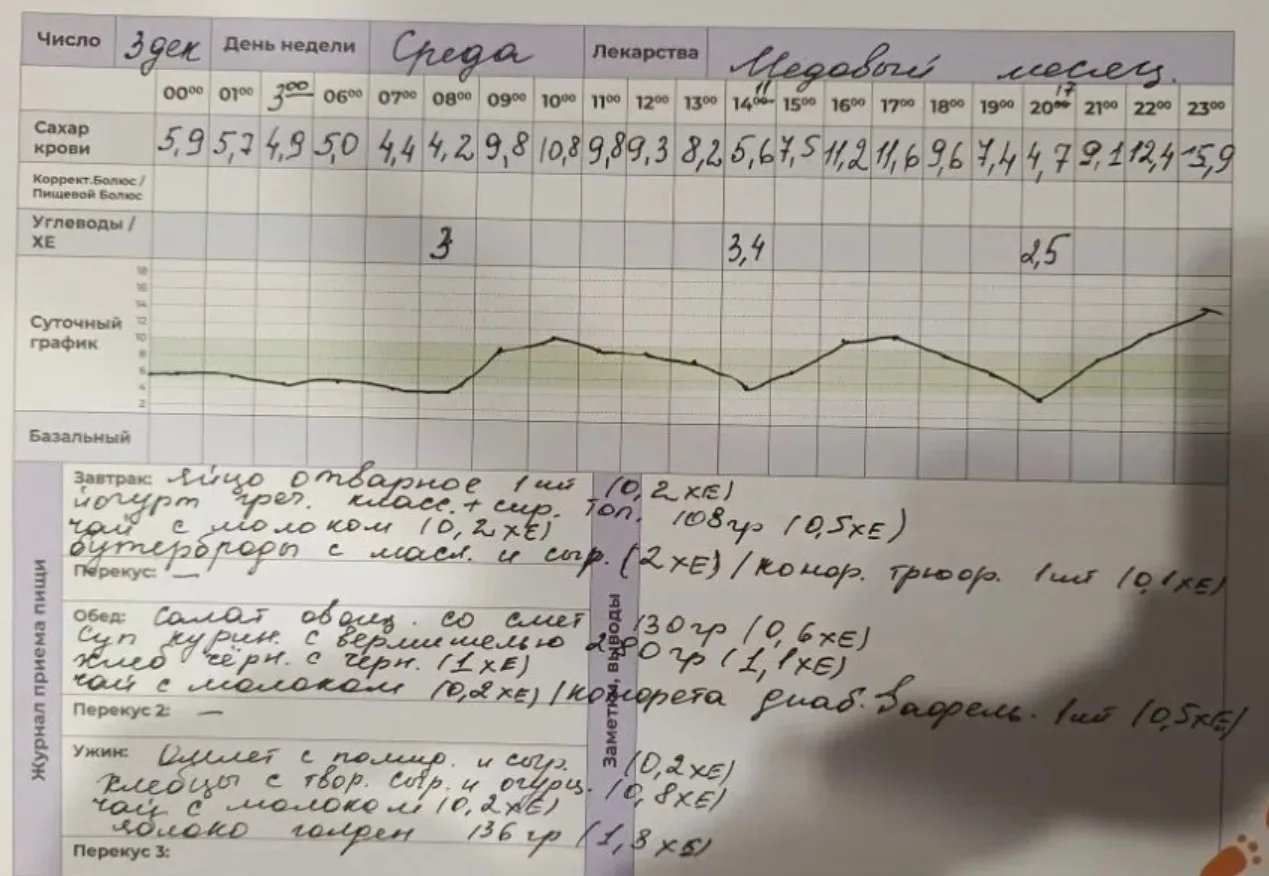 Число 3 дек День недели Среда Лекарства Медовый месяц.
00⁰⁰ 01⁰⁰ 3⁰⁰ 06⁰⁰ 07⁰⁰ 08⁰⁰ 09⁰⁰ 10⁰⁰ 11⁰⁰ 12⁰⁰ 13⁰⁰ 14¹¹ 15⁰⁰ 16⁰⁰ 17⁰⁰ 18⁰⁰ 19⁰⁰ 20¹⁷ 21⁰⁰ 22⁰⁰ 23⁰⁰
Сахар крови 5,9 5,7 4,9 5,0 4,4 4,2 9,8 10,8 9,8 9,3 8,2 5,6 7,5 11,2 11,6 9,6 7,4 4,7 9,1 12,4 15,9
Коррект.Болюс /
Пищевой Болюс
Углеводы /
ХЕ 3 3,4 2,5
18
16
14
12
Суточный
график
10
8
6
4
2
Базальный
Журнал приема пищи
Заметки, выводы
Завтрак: яйцо отварное 1 шт (0,2 ХЕ)
йогурт греч. класс. + сир. топ. 108 гр (0,5 ХЕ)
чай с молоком (0,2 ХЕ)
бутерброды с масл. и сыр. (2 ХЕ) / 1 шт (0,1 ХЕ)
Перекус: —
Обед: Салат овощ. со смет 130 гр (0,6 ХЕ)
Суп курин. с вермишелью 280 гр (1,1 ХЕ)
хлеб чёрн. с черн. (1 ХЕ)
чай с молоком (0,2 ХЕ) / конфета диаб. Вафель. 1 шт (0,5 ХЕ)
Перекус 2: —
Ужин: Омлет с помид. и сыр. (0,2 ХЕ)
хлебцы с твор. сыр. и огурц. (0,8 ХЕ)
чай с молоком (0,2 ХЕ)
яблоко голден 136 гр (1,3 ХЕ)
Перекус 3: